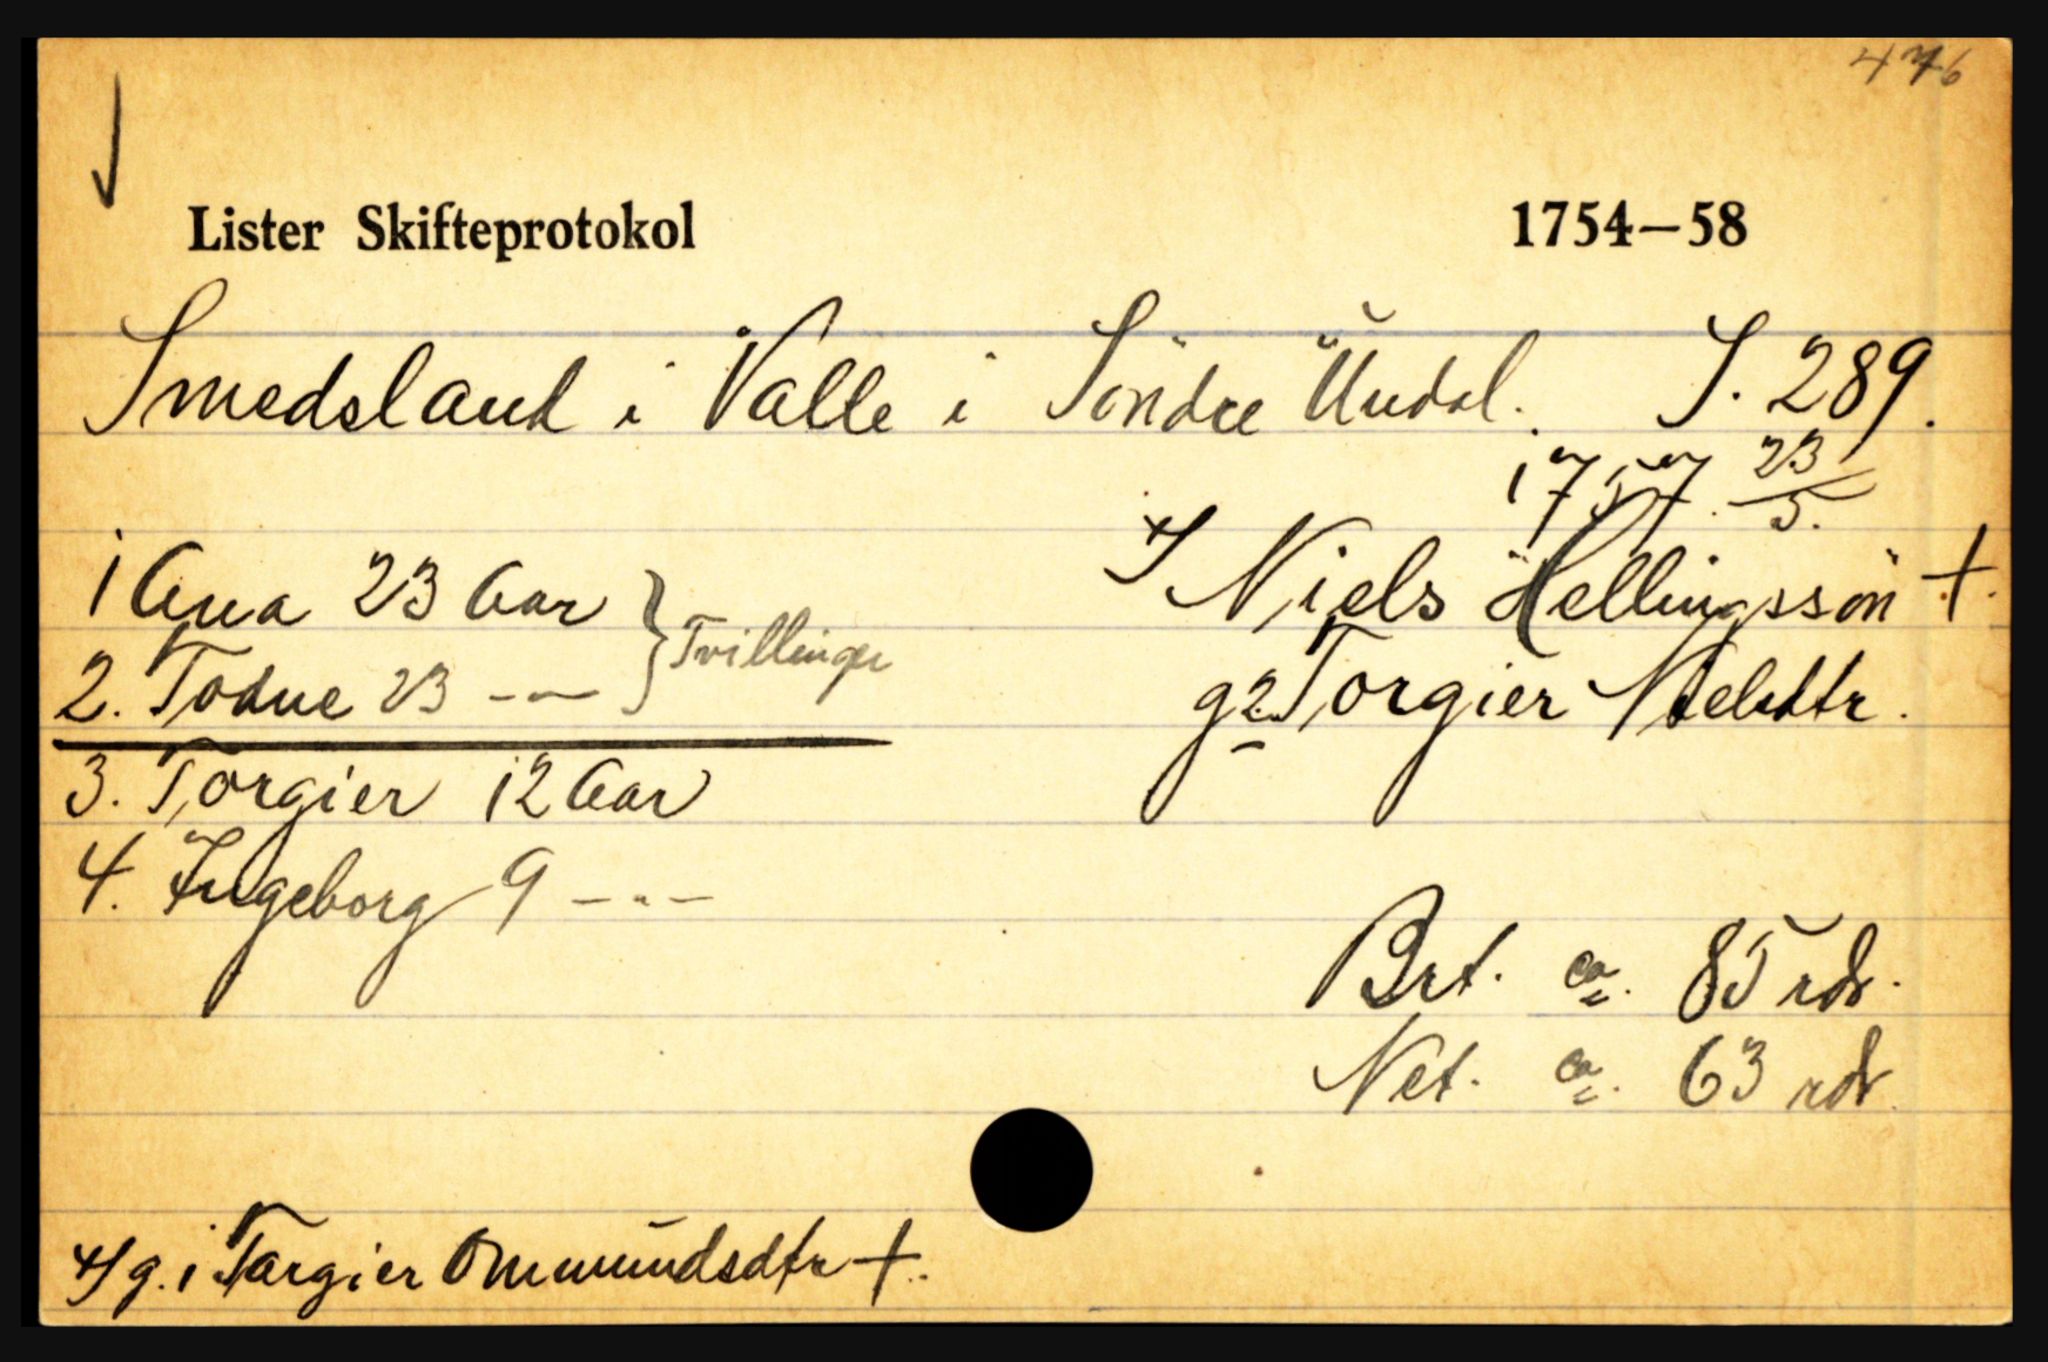 476
Lister Skifteprotokol 1754—58
Smedsland i Valle i Söndre Undal. S. 289.
1757. 23/5.
x/ Niels Hellingssön +.
g 2. Torgier Nielsdtr.
1 Ana 23 Aar } Tvillinger
2. Todne 23 -"-
3. Torgier 12 Aar
4. Ingeborg 9 -"-
Brt. ca. 85 rdr.
Net. ca. 63 rdr
x/ g. 1 Targier Ommundsdtr +.